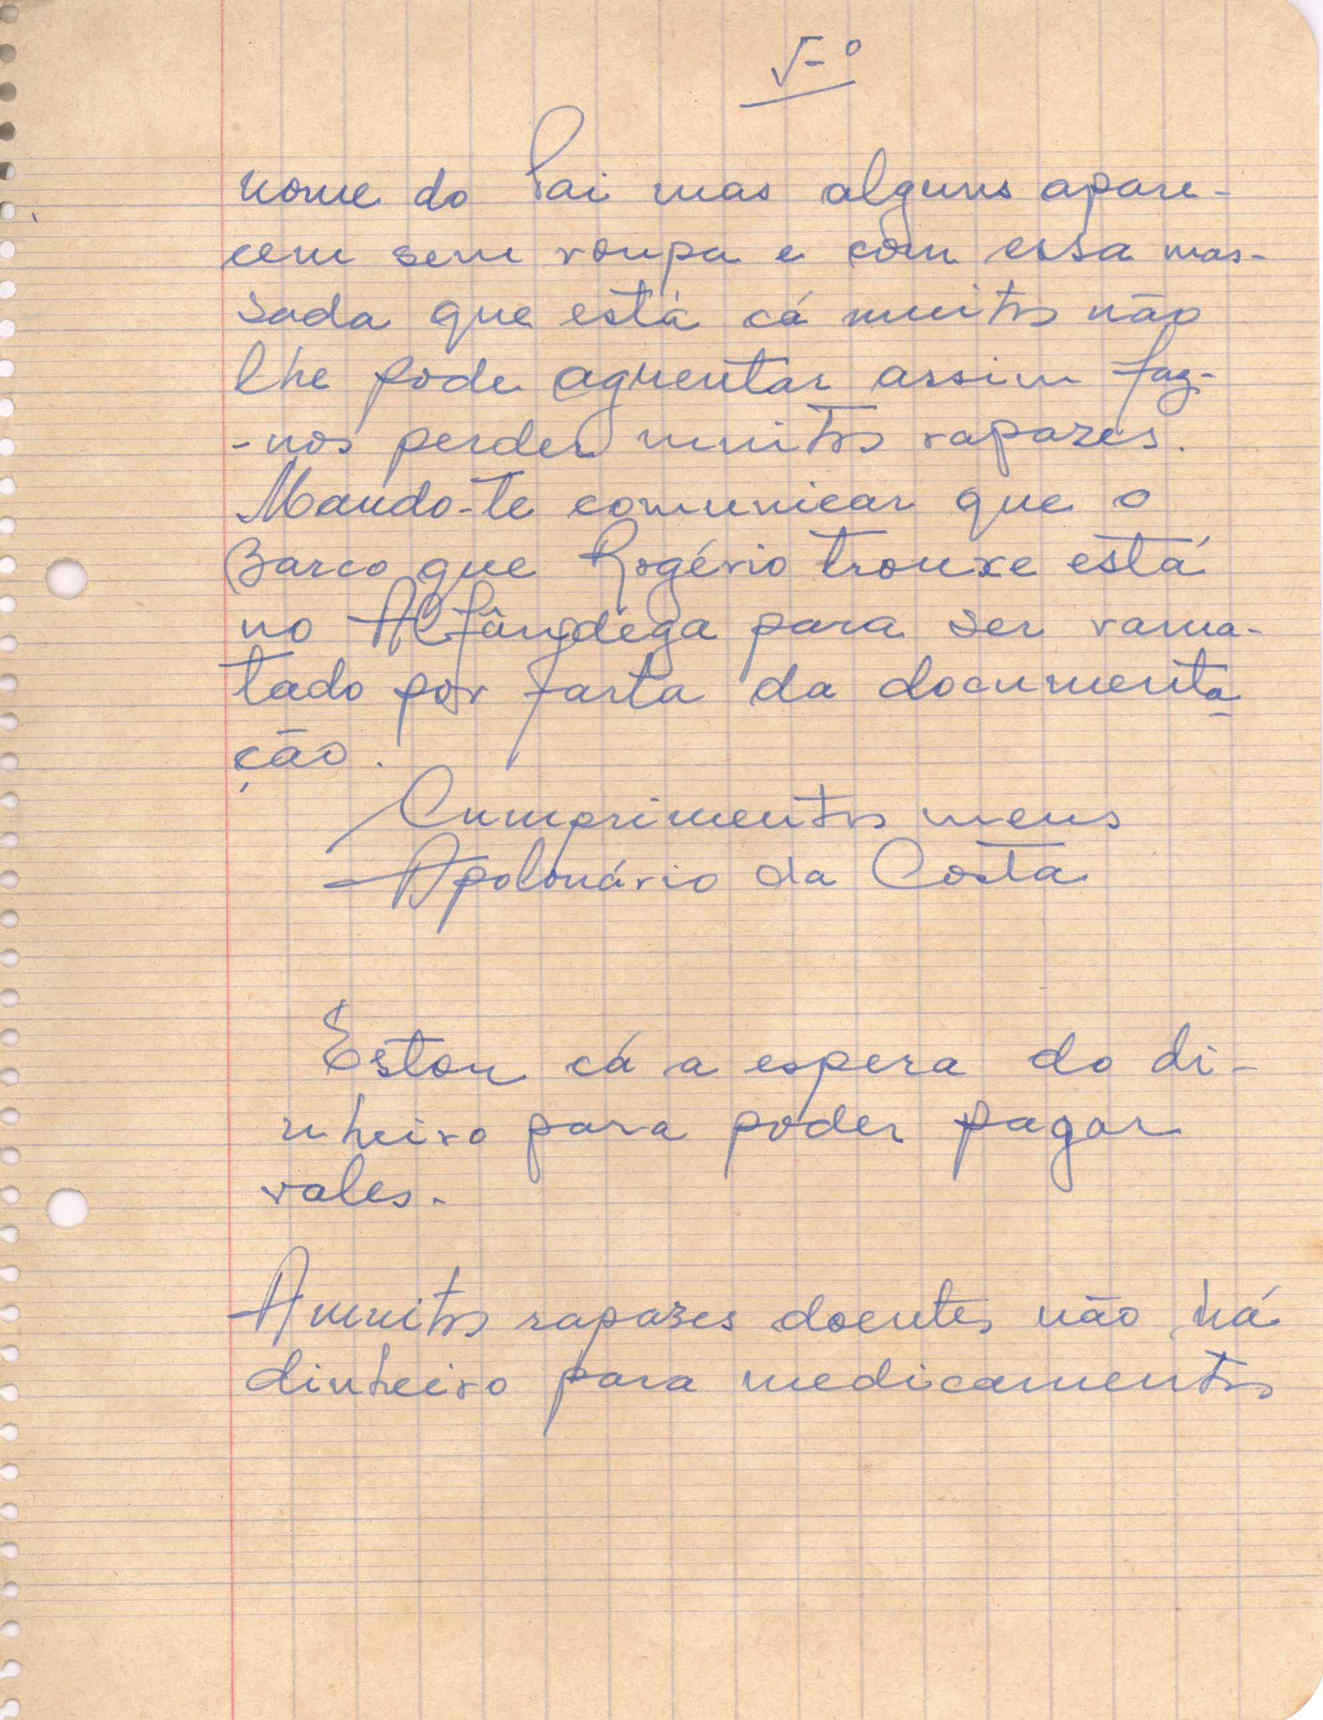 V-º
nome do Pai mas alguns apare-
cem sem roupa e com essa mas-
sada que está cá muitos não
lhe pode aguentar assim faz-
-nos perder muitos rapazes.
Mando-te comunicar que o
Barco que Rogério trouxe está
no Alfângdega para ser rama-
tado por farta da documenta
ção.
Cumprimentos meus
Apolonário da Costa
Estou cá a espera do di-
nheiro para poder pagar
vales.
A muitos rapazes doentes não há
dinheiro para medicamentos